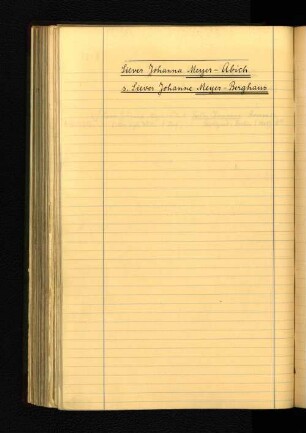 Siever Johanna Meyer-Abich
s. Siever Johanne Meyer-Berghaus